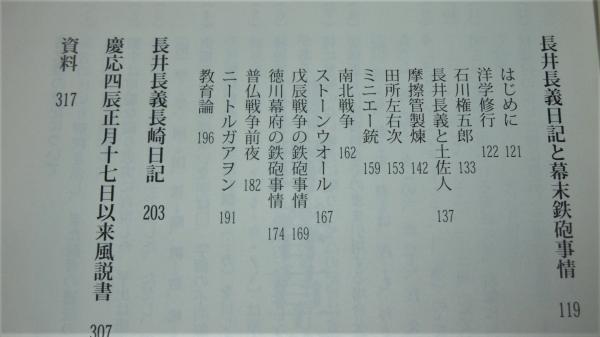 長井長義日記と幕末鉄砲事情 119
はじめに 121
洋学修行 122
石川権五郎 133
長井長義と土佐人 137
摩擦管製煉 142
田所左右次 153
ミニエー銃 159
南北戦争 162
ストーンウオール 167
戊辰戦争の鉄砲事情 169
徳川幕府の鉄砲事情 174
普仏戦争前夜 182
ニートルガアヲン 191
教育論 196
長井長義長崎日記 203
慶応四辰正月十七日以来風説書 307
資料 317